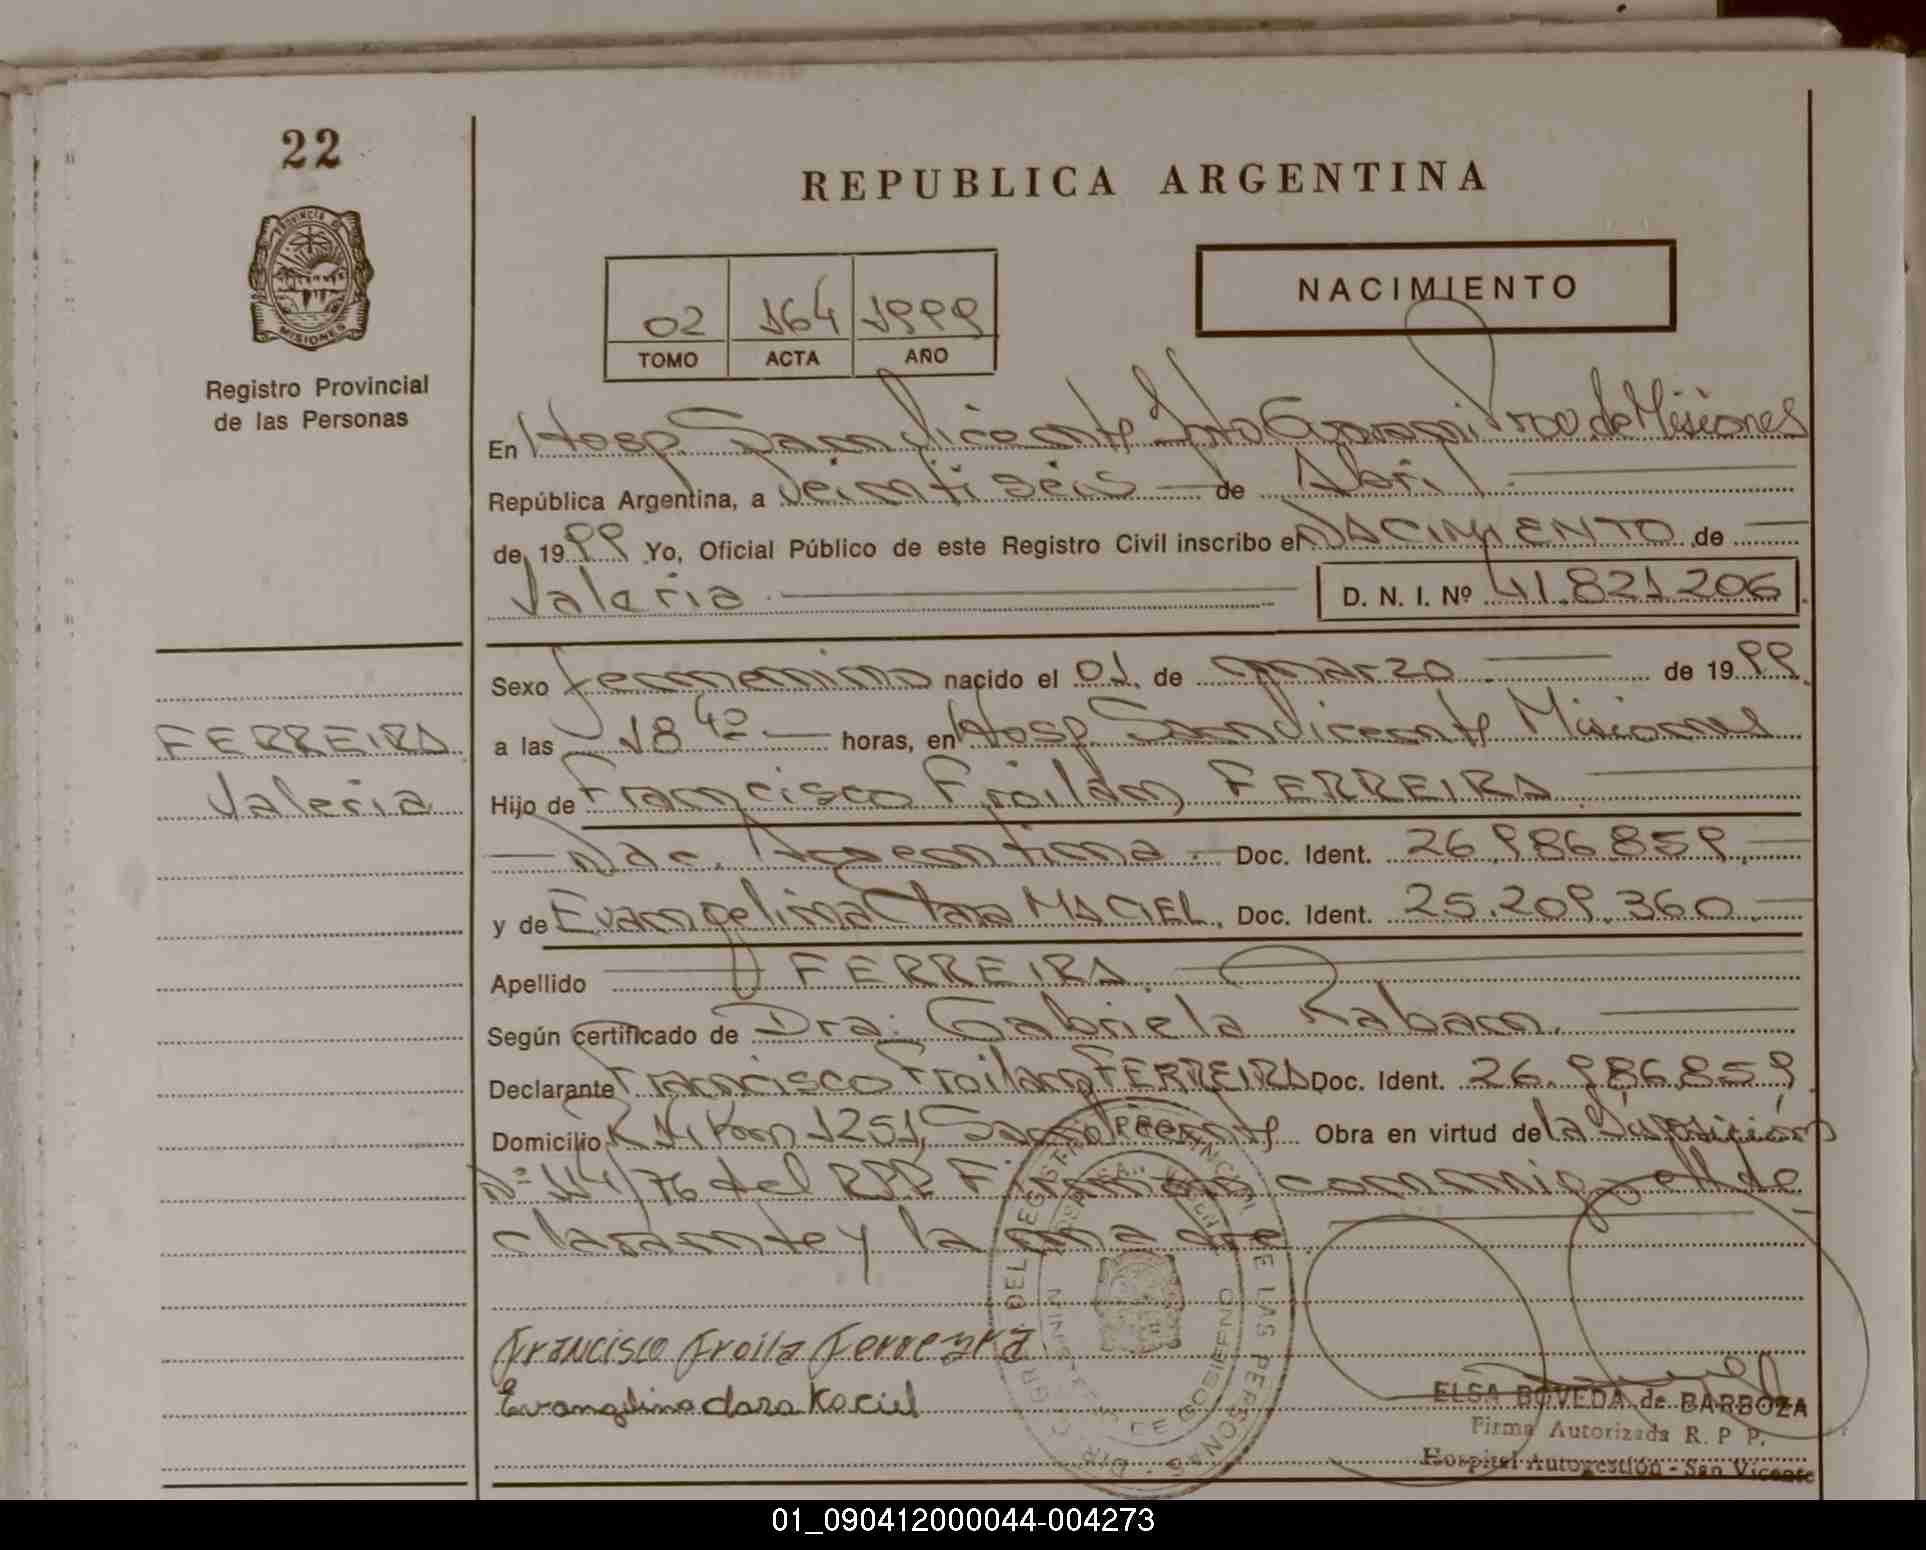 22
REPUBLICA ARGENTINA
PROVINCIA DE
MISIONES
Registro Provincial
de las Personas
02 164 1999
TOMO ACTA AÑO
NACIMIENTO
En Hosp. San Vicente Dto Guaraní Prov de Misiones
República Argentina, a Veintiseis de Abril
de 1999 Yo, Oficial Público de este Registro Civil inscribo el NACIMIENTO de
Valeria D. N. I. Nº 41.821.206
Sexo femenino nacido el 01 de marzo de 1999
a las 18 40 horas, en Hosp. San Vicente Misiones
FERREIRA
Valeria
Hijo de Francisco Froilan FERREIRA
Nac. Argentina Doc. Ident. 26.986.859
y de Evangelina Clara MACIEL, Doc. Ident. 25.209.360
Apellido FERREIRA
Según certificado de Dra. Gabriela Raban.
Declarante Francisco Froilan FERREIRA Doc. Ident. 26.986.859
Domicilio 1251, San Vicente Obra en virtud de la Disposición
Nº 114/76 del RPP Firman conmigo el de
clarante y la madre
Francisco Froila Ferreyra
Evangelina clara Maciel
DIR. GRAL. DEL REGISTRO PROVINCIAL DE LAS PERSONAS
MINISTERIO DE GOBIERNO
ELSA BOVEDA de BARBOZA
Firma Autorizada R. P. P.
Hospital Autogestión - San Vicente
01_090412000044-004273